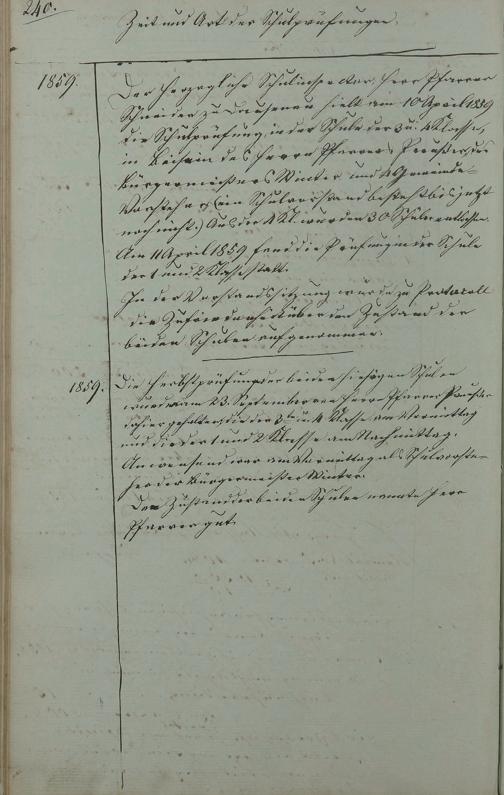 240.
Zeit und Art der Schulprüfungen.
1859.
Der Herzogliche Schulinspector, Herr Pfarrer
Schneider zu Dausenau hielt am 10 April 1859
die Schulprüfung in der Schule der 3 u. 4 Klasse,
in Beisein des Herrn Pfarrers, des
Bürgermeisters Winter und 4 Gemeinde-
Vorsteher (ein Schulvorstand besteht bis jetzt
noch nicht.) Aus der 4 Kl. wurden 30 Schüler entlassen.
Am 11 April 1859 fand die Prüfung in der Schule
der 1 und 2 Klasse statt.
In der Vorstandssitzung wurde zu Protocoll
die Zufriedenheit über den Zustand der
beiden Schulen aufgenommen.
1859.
Die Herbstprüfung der beiden hiesigen Schulen
wurde am 23. September von Herrn Pfarrer
dahier gehalten, die der 3ten u. 4 Klasse am Vormittag
und die der 1 und 2 Klasse am Nachmittag.
Anwesend war am Vormittag als Schulvorste-
her der Bürgermeister Winter.
Den Zustand der beiden Schulen nannte Herr
Pfarrer gut.